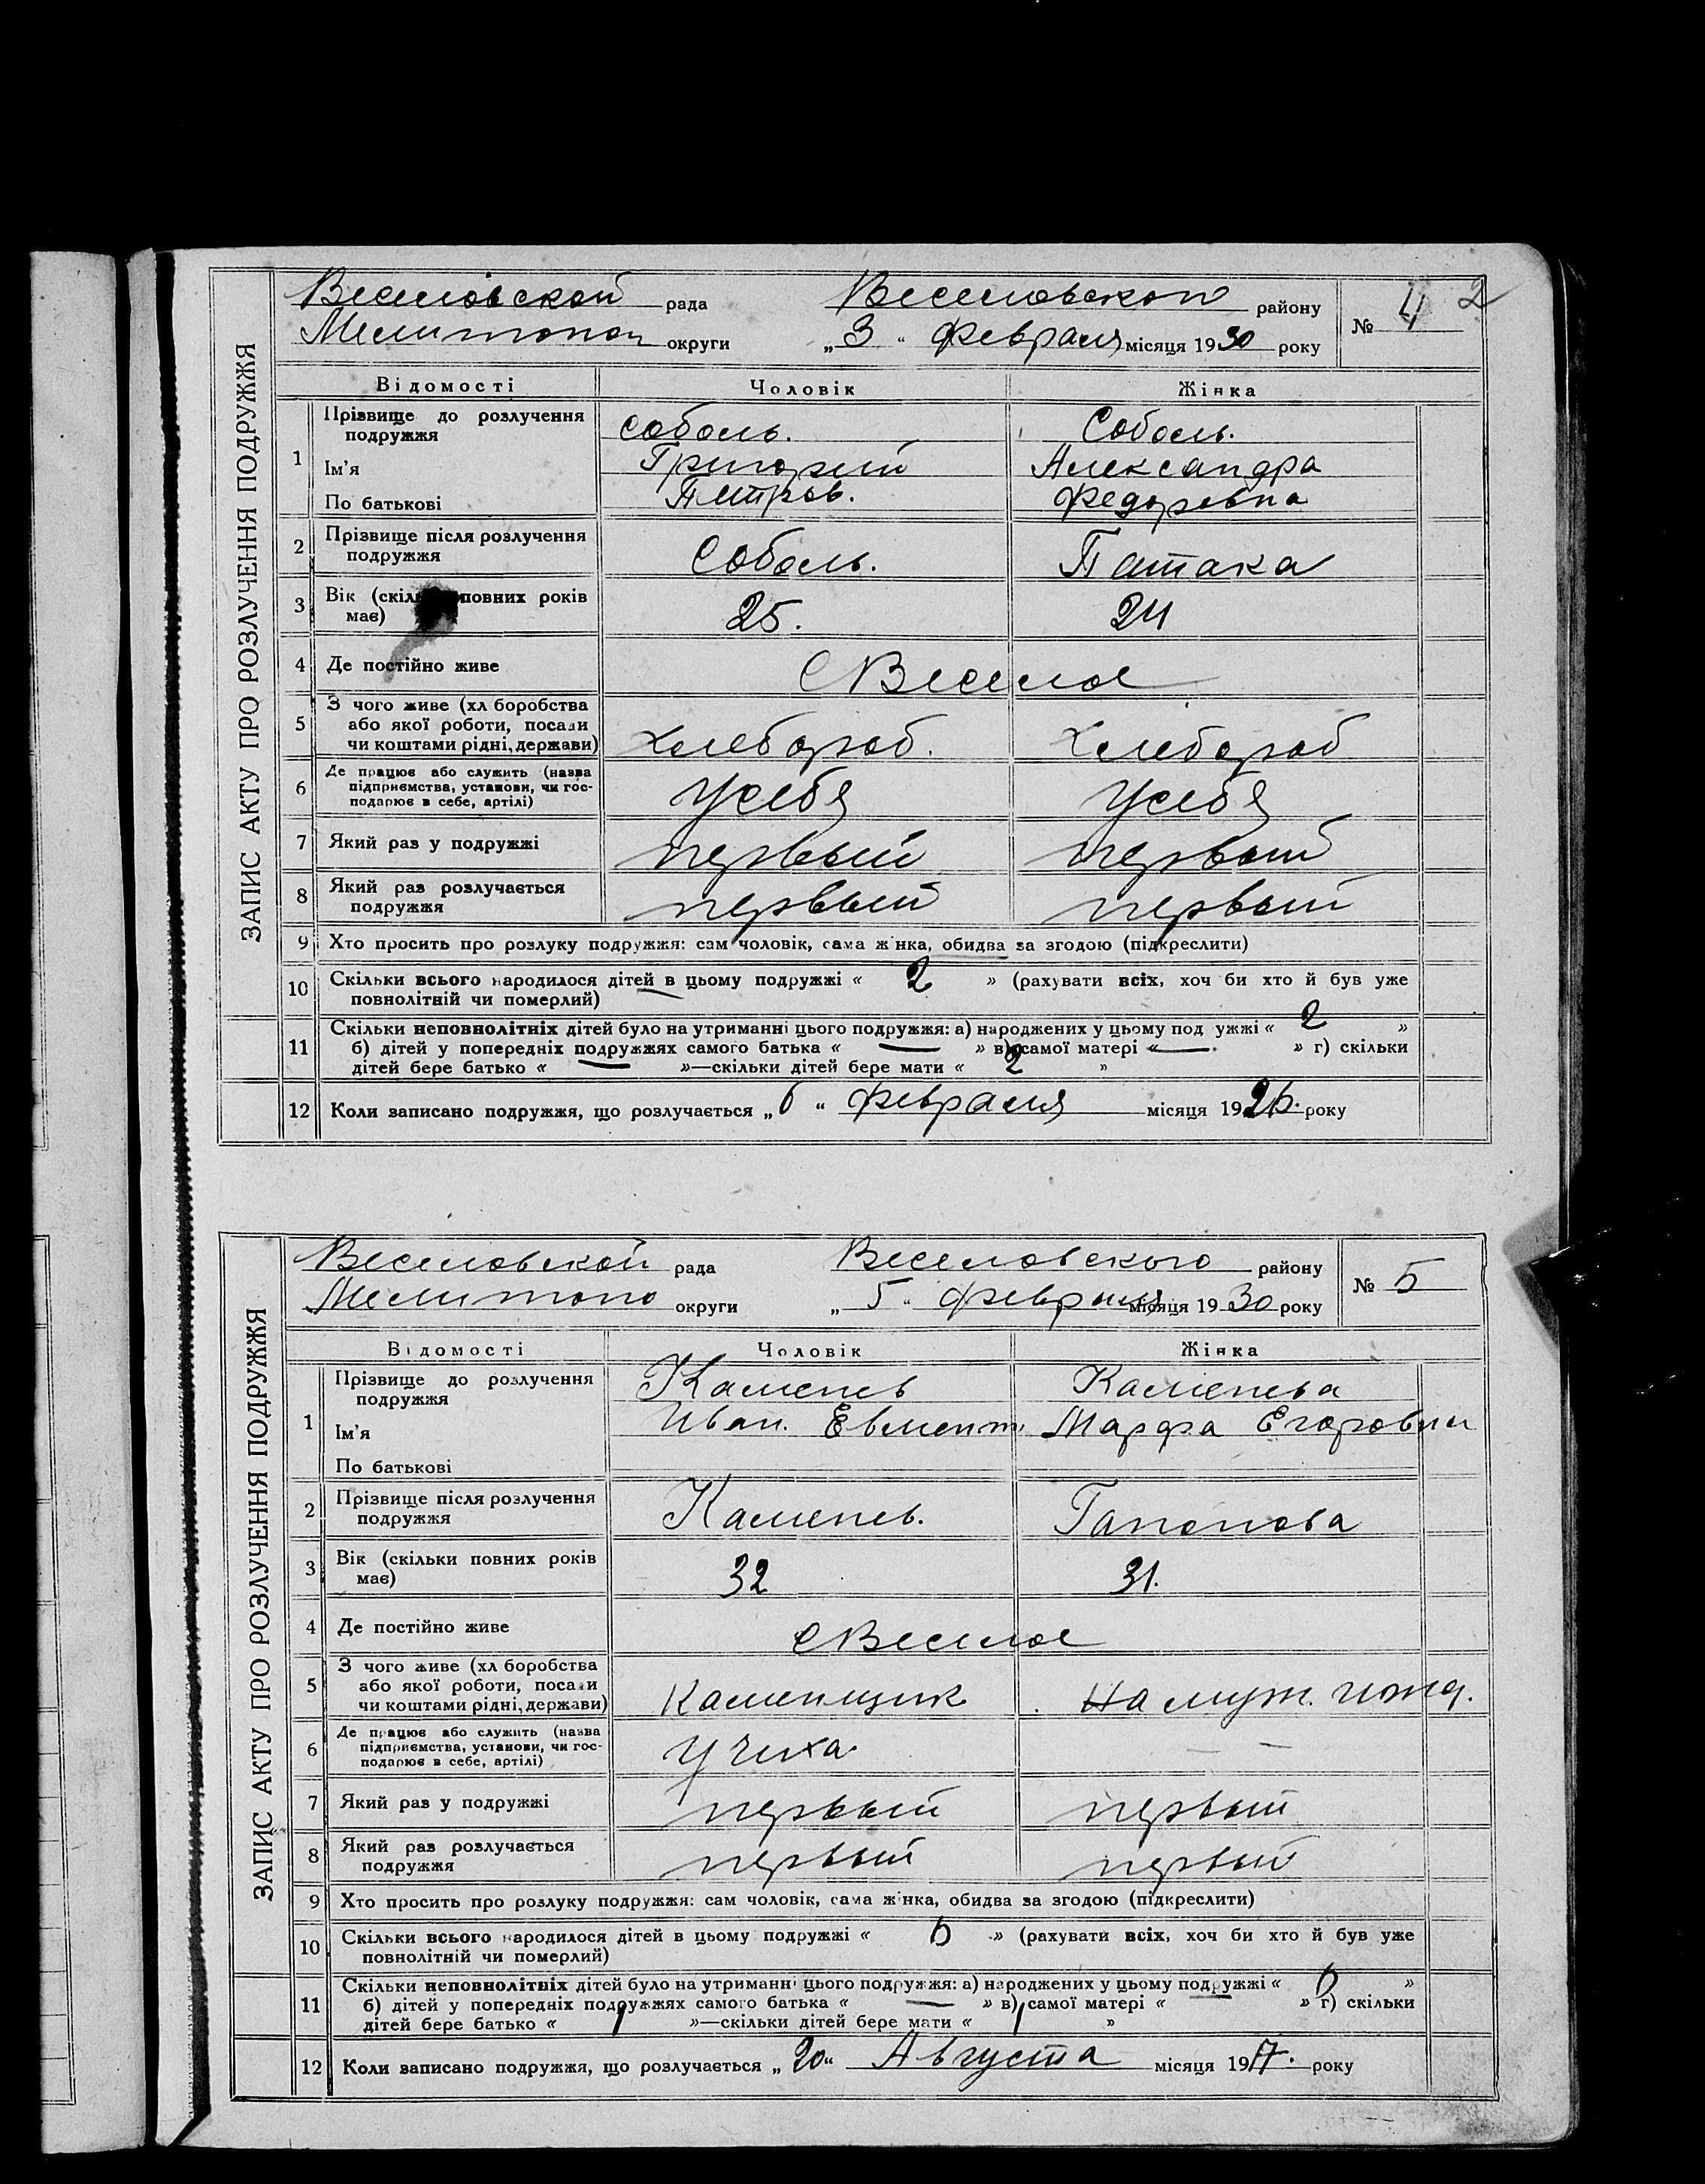 ЗАПИС АКТУ ПРО РОЗЛУЧЕННЯ ПОДРУЖЖЯ
Веселовской рада Веселовского району № 4 2
Мелитопол округи „3“ Февраля місяця 1930 року
Відомості Чоловік Жінка
1 Прізвище до розлучення подружжя Соболь. Соболь.
Ім’я Григорий Александра
По батькові Петров. Федоровна
2 Прізвище після розлучення подружжя Соболь. Патака
3 Вік (скільки повних років має) 25. 24
4 Де постійно живе с Веселое
5 З чого живе (хл боробства або якої роботи, посади чи коштами рідні, держави) Хлебороб. Хлебороб
6 Де працює або служить (назва підприємства, установи, чи господарює в себе, артілі) У себя У себя
7 Який раз у подружжі первый первый
8 Який раз розлучається подружжя первый первый
9 Хто просить про розлуку подружжя: сам чоловік, сама жінка, обидва за згодою (підкреслити)
10 Скільки всього народилося дітей в цьому подружжі « 2 » (рахувати всіх, хоч би хто й був уже
повнолітній чи померлий)
11 Скільки неповнолітніх дітей було на утриманні цього подружжя: а) народжених у цьому под ужжі « 2 »
б) дітей у попередніх подружжях самого батька « — » в) самої матері « — » г) скільки
дітей бере батько « — »—скільки дітей бере мати « 2 »
12 Коли записано подружжя, що розлучається „6“ Февраля місяця 1926. року
ЗАПИС АКТУ ПРО РОЗЛУЧЕННЯ ПОДРУЖЖЯ
Веселовской рада Веселовского району № 5
Мелитопо округи „5“ Февраля місяця 1930 року
Відомості Чоловік Жінка
1 Прізвище до розлучення подружжя Каменев Каменева
Ім’я Иван. Евмент. Марфа Егоровна
По батькові
2 Прізвище після розлучення подружжя Каменев. Гапонова
3 Вік (скільки повних років має) 32 31.
4 Де постійно живе с Веселое
5 З чого живе (хл боробства або якої роботи, посади чи коштами рідні, держави) Каменщик На муж. ижд.
6 Де працює або служить (назва підприємства, установи, чи господарює в себе, артілі) — —
7 Який раз у подружжі первый первый
8 Який раз розлучається подружжя первый первый
9 Хто просить про розлуку подружжя: сам чоловік, сама жінка, обидва за згодою (підкреслити)
10 Скільки всього народилося дітей в цьому подружжі « » (рахувати всіх, хоч би хто й був уже
повнолітній чи померлий)
11 Скільки неповнолітніх дітей було на утриманні цього подружжя: а) народжених у цьому подружжі « »
б) дітей у попередніх подружжях самого батька « — » в) самої матері « » г) скільки
дітей бере батько « 1 »—скільки дітей бере мати « 1 »
12 Коли записано подружжя, що розлучається „20“ Августа місяця 1917. року